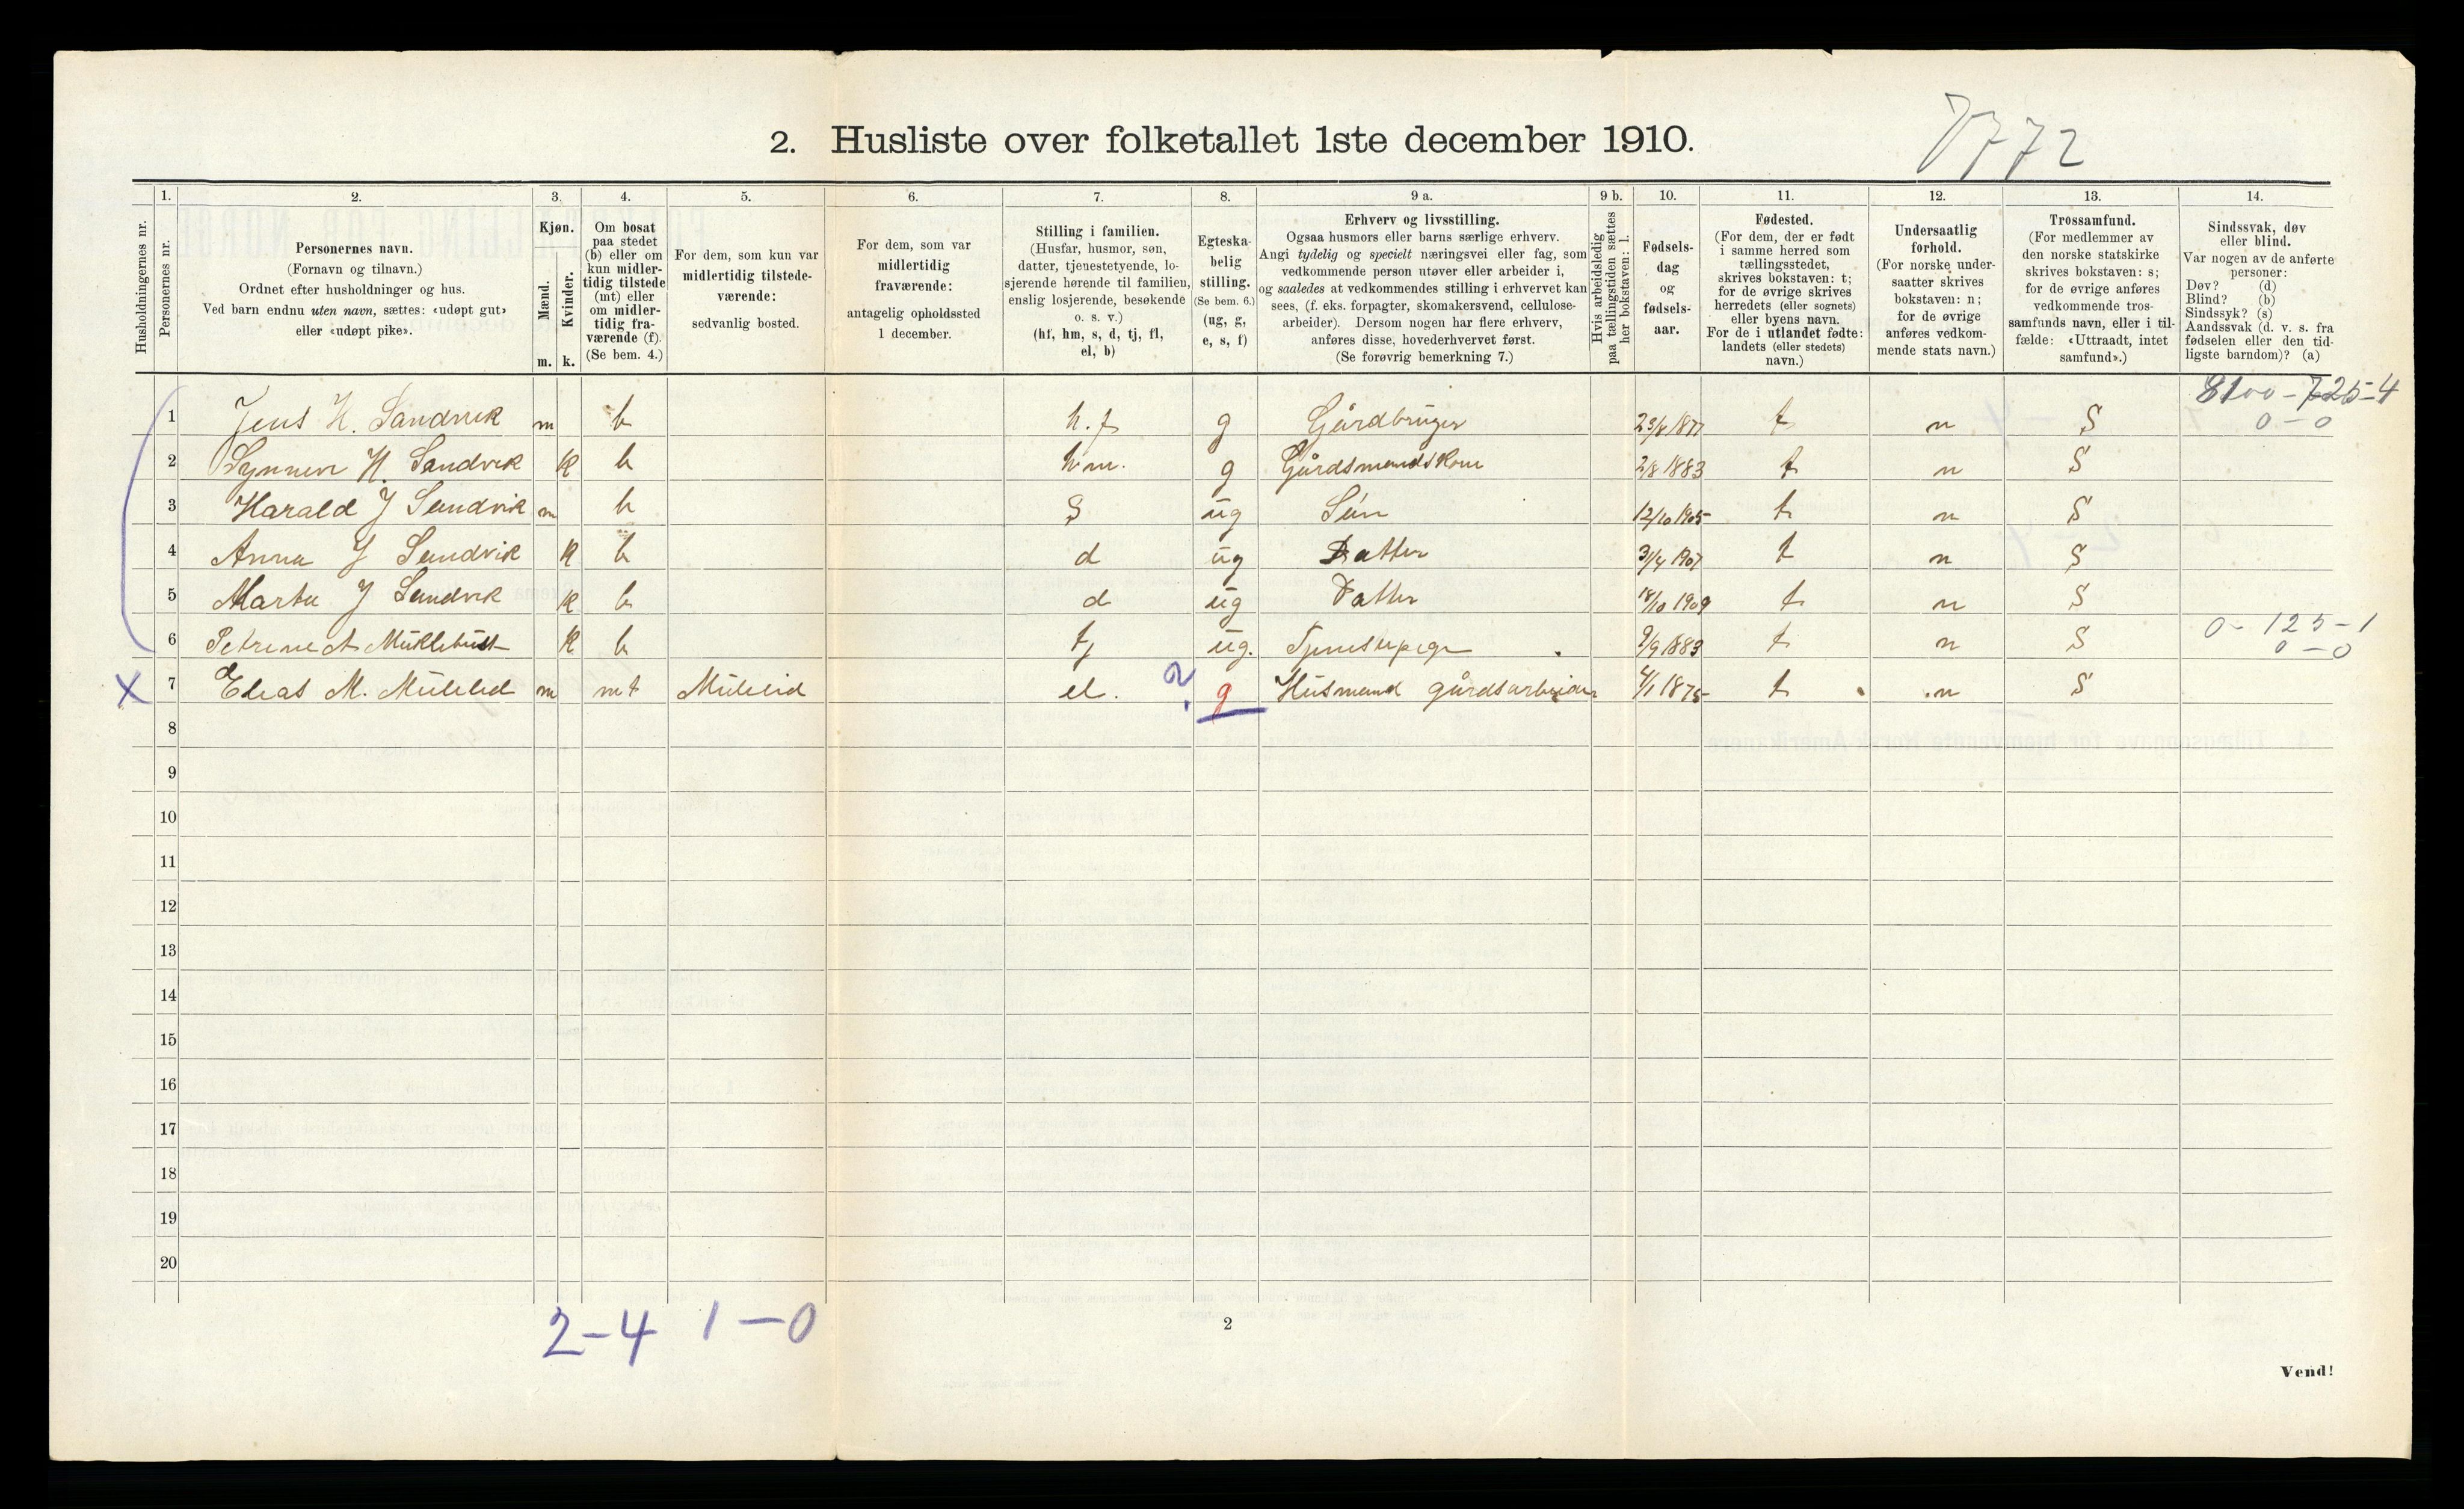 V772
2. Husliste over folketallet 1ste december 1910.
1. 2. 3. 4. 5. 6. 7. 8. 9 a. 9 b. 10. 11. 12. 13. 14.
Husholdningernes nr.
Personernes nr.
Personernes navn.
(Fornavn og tilnavn.)
Ordnet efter husholdninger og hus.
Ved barn endnu uten navn, sættes: «udøpt gut»
eller «udøpt pike».
Kjøn.
Mænd.
Kvinder.
m. k.
Om bosat
paa stedet
(b) eller om
kun midler-
tidig tilstede
(mt) eller
om midler-
tidig fra-
værende (f).
(Se bem. 4.)
For dem, som kun var
midlertidig tilstede-
værende:
sedvanlig bosted.
For dem, som var
midlertidig
fraværende:
antagelig opholdssted
1 december.
Stilling i familien.
(Husfar, husmor, søn,
datter, tjenestetyende, lo-
sjerende hørende til familien,
enslig losjerende, besøkende
o. s. v.)
(hf, hm, s, d, tj, fl,
el, b)
Egteska-
belig
stilling.
(Se bem. 6.)
(ug, g,
e, s, f)
Erhverv og livsstilling.
Ogsaa husmors eller barns særlige erhverv.
Angi tydelig og specielt næringsvei eller fag, som
vedkommende person utøver eller arbeider i,
og saaledes at vedkommendes stilling i erhvervet kan
sees, (f. eks. forpagter, skomakersvend, cellulose-
arbeider). Dersom nogen har flere erhverv,
anføres disse, hovederhvervet først.
(Se forøvrig bemerkning 7.)
Hvis arbeidsledig
paa tællingstiden sættes
her bokstaven: l.
Fødsels-
dag
og
fødsels-
aar.
Fødested.
(For dem, der er født
i samme herred som
tællingsstedet,
skrives bokstaven: t;
for de øvrige skrives
herredets (eller sognets)
eller byens navn.
For de i utlandet fødte:
landets (eller stedets)
navn.)
Undersaatlig
forhold.
(For norske under-
saatter skrives
bokstaven: n;
for de øvrige
anføres vedkom-
mende stats navn.)
Trossamfund.
(For medlemmer av
den norske statskirke
skrives bokstaven: s;
for de øvrige anføres
vedkommende tros-
samfunds navn, eller i til-
fælde: «Uttraadt, intet
samfund».)
Sindssvak, døv
eller blind.
Var nogen av de anførte
personer:
Døv? (d)
Blind? (b)
Sindssyk? (s)
Aandssvak (d. v. s. fra
fødselen eller den tid-
ligste barndom)? (a)
1 Jens H. Sandvik m b h.f g Gårdbruger 23/8 1877 t n S 0-0
2 Synnev H. Sandvik k b hm. g Gårdsmandskone 2/8 1883 t n S
3 Harald J Sandvik m b S ug Søn 12/10 1905 t n S
4 Anna J Sandvik k b d ug Datter 3/4 1907 t n S
5 Marta J Sandvik k b d ug Datter 18/10 1909 t n S
6 Petrine A Müklebüst k b tj ug. Tjenestepige 9/9 1883 t n S 0-125-1
0-0
X 7 Elias M. Müleleid m mt Müleleid el. ? g Hüsmand gårdsarbeider 4/1 1875 t n S
8
9
10
11
12
13
14
15
16
17
18
19
20
2-4 1-0
2
Vend!